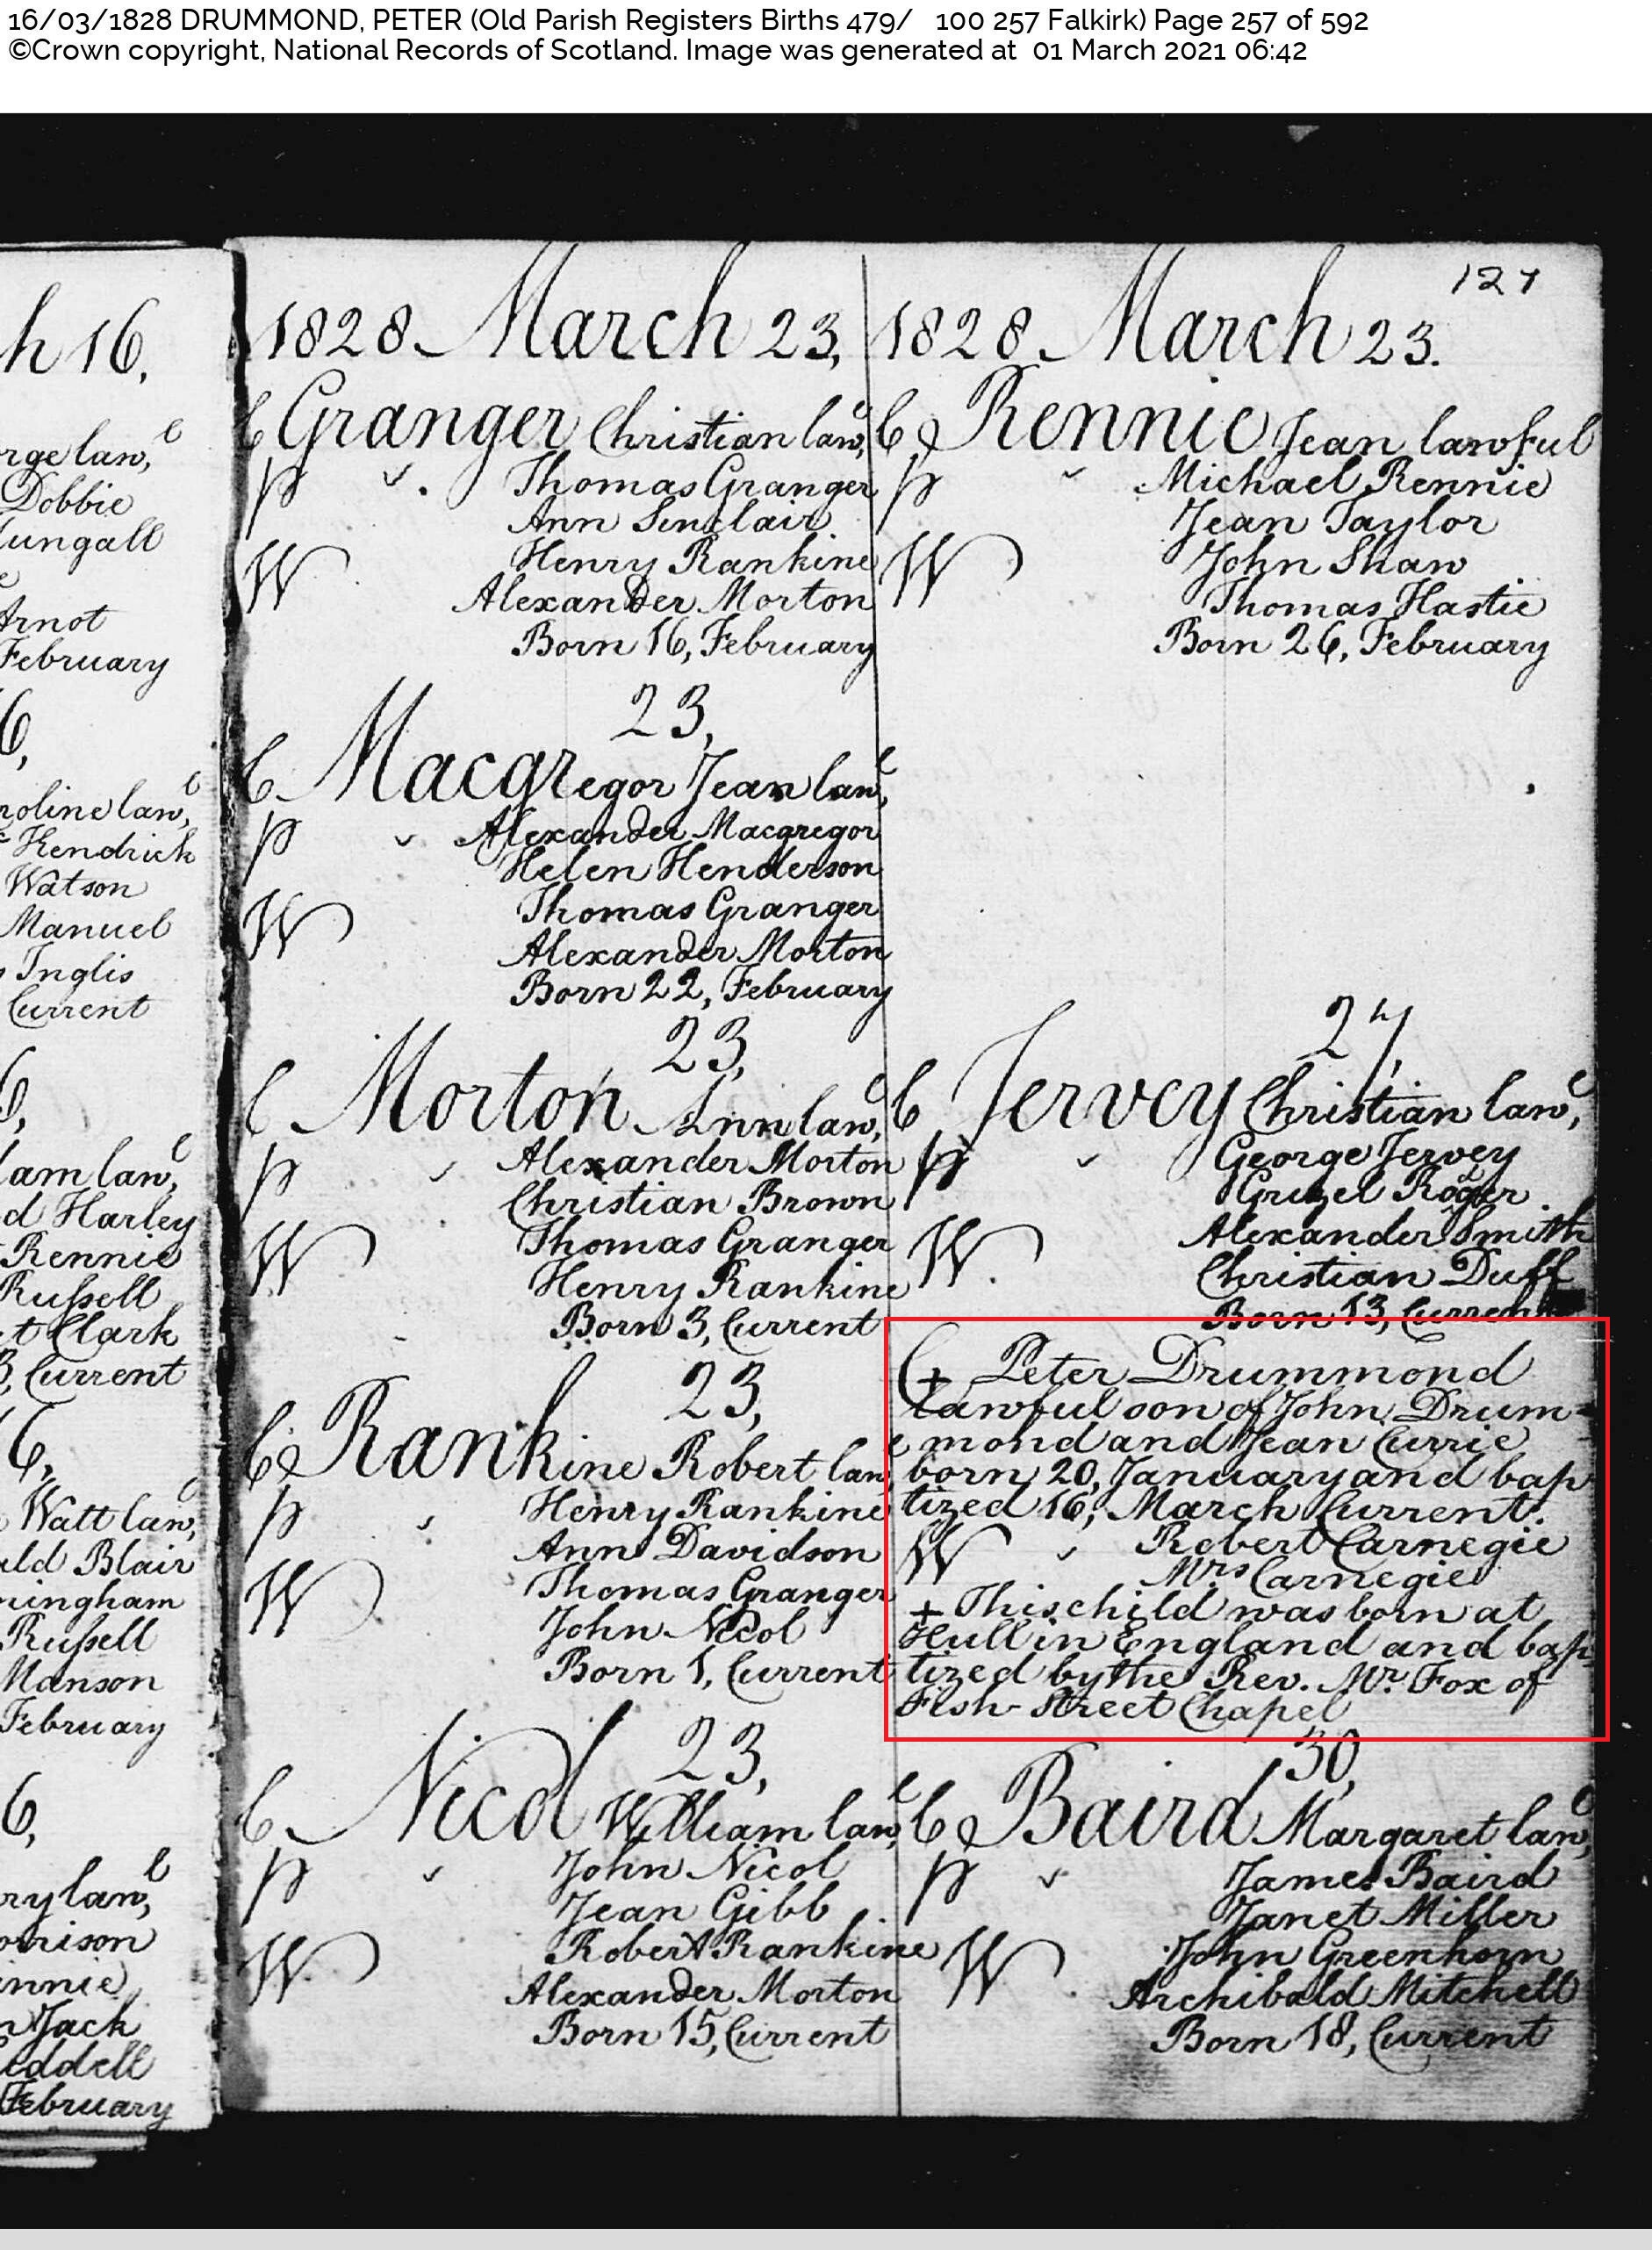 16/03/1828 DRUMMOND, PETER (Old Parish Registers Births 479/ 100 257 Falkirk) Page 257 of 592
©Crown copyright, National Records of Scotland. Image was generated at 01 March 2021 06:42
h 16,
rge law,l
Dobbie
ungall
Arnot
February
6,
roline law,l
Kendrick
Watson
Manuel
Inglis
Current
6,
am law,l
d Harley
Rennie
Russell
t Clark
3, Current
6,
Watt law,l
ald Blair
ningham
Russell
Manson
February
6,
ry law,l
orrison
innie
n Jack
eddell
February
1828 March 23,
C Granger Christian law,l
P Thomas Granger
Ann Sinclair
W Henry Rankine
Alexander Morton
Born 16, February
23,
C Macgregor Jean law,l
P Alexander Macgregor
Helen Henderson
W Thomas Granger
Alexander Morton
Born 22, February
23,
C Morton Ann law,l
P Alexander Morton
Christian Brown
W Thomas Granger
Henry Rankine
Born 3, Current
23,
C Rankine Robert law,l
P Henry Rankine
Ann Davidson
W Thomas Granger
John Nicol
Born 1, Current
23,
C Nicol William law,l
P John Nicol
Jean Gibb
W Robert Rankine
Alexander Morton
Born 15, Current
127
1828 March 23.
C Rennie Jean lawful
P Michael Rennie
Jean Taylor
W John Shaw
Thomas Hastie
Born 26, February
27,
C Jervey Christian law,l
P George Jervey
Grizel Roger
W Alexander Smith
Christian Duff
Born 13, Current
C + Peter Drummond
lawful son of John Drum=
mond and Jean Currie
born 20, January and bap
tized 16, March Current.
W Robert Carnegie
Mrs Carnegie
+ This child was born at
Hull in England and bap
tized by the Rev. Mr. Fox of
Fish-Street Chapel
30,
C Baird Margaret law,l
P James Baird
Janet Miller
W John Greenhorn
Archibald Mitchell
Born 18, Current